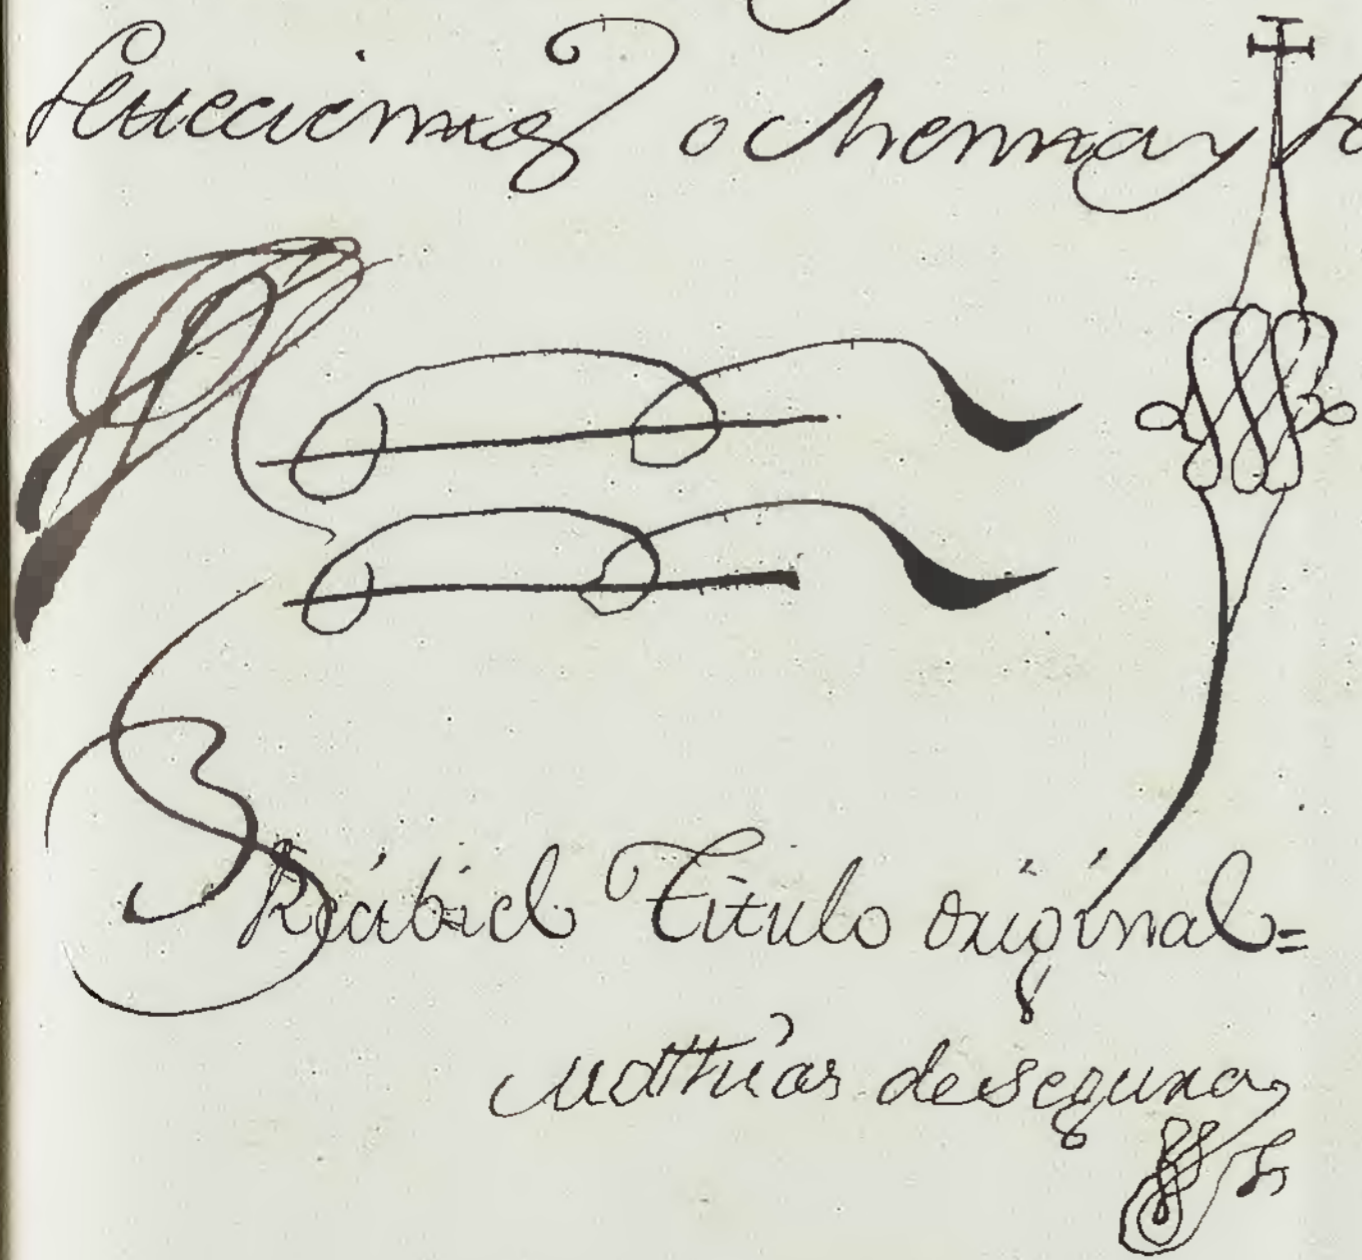 settecientos ochenta y
Recibi el Titulo original=
Matthias de segura